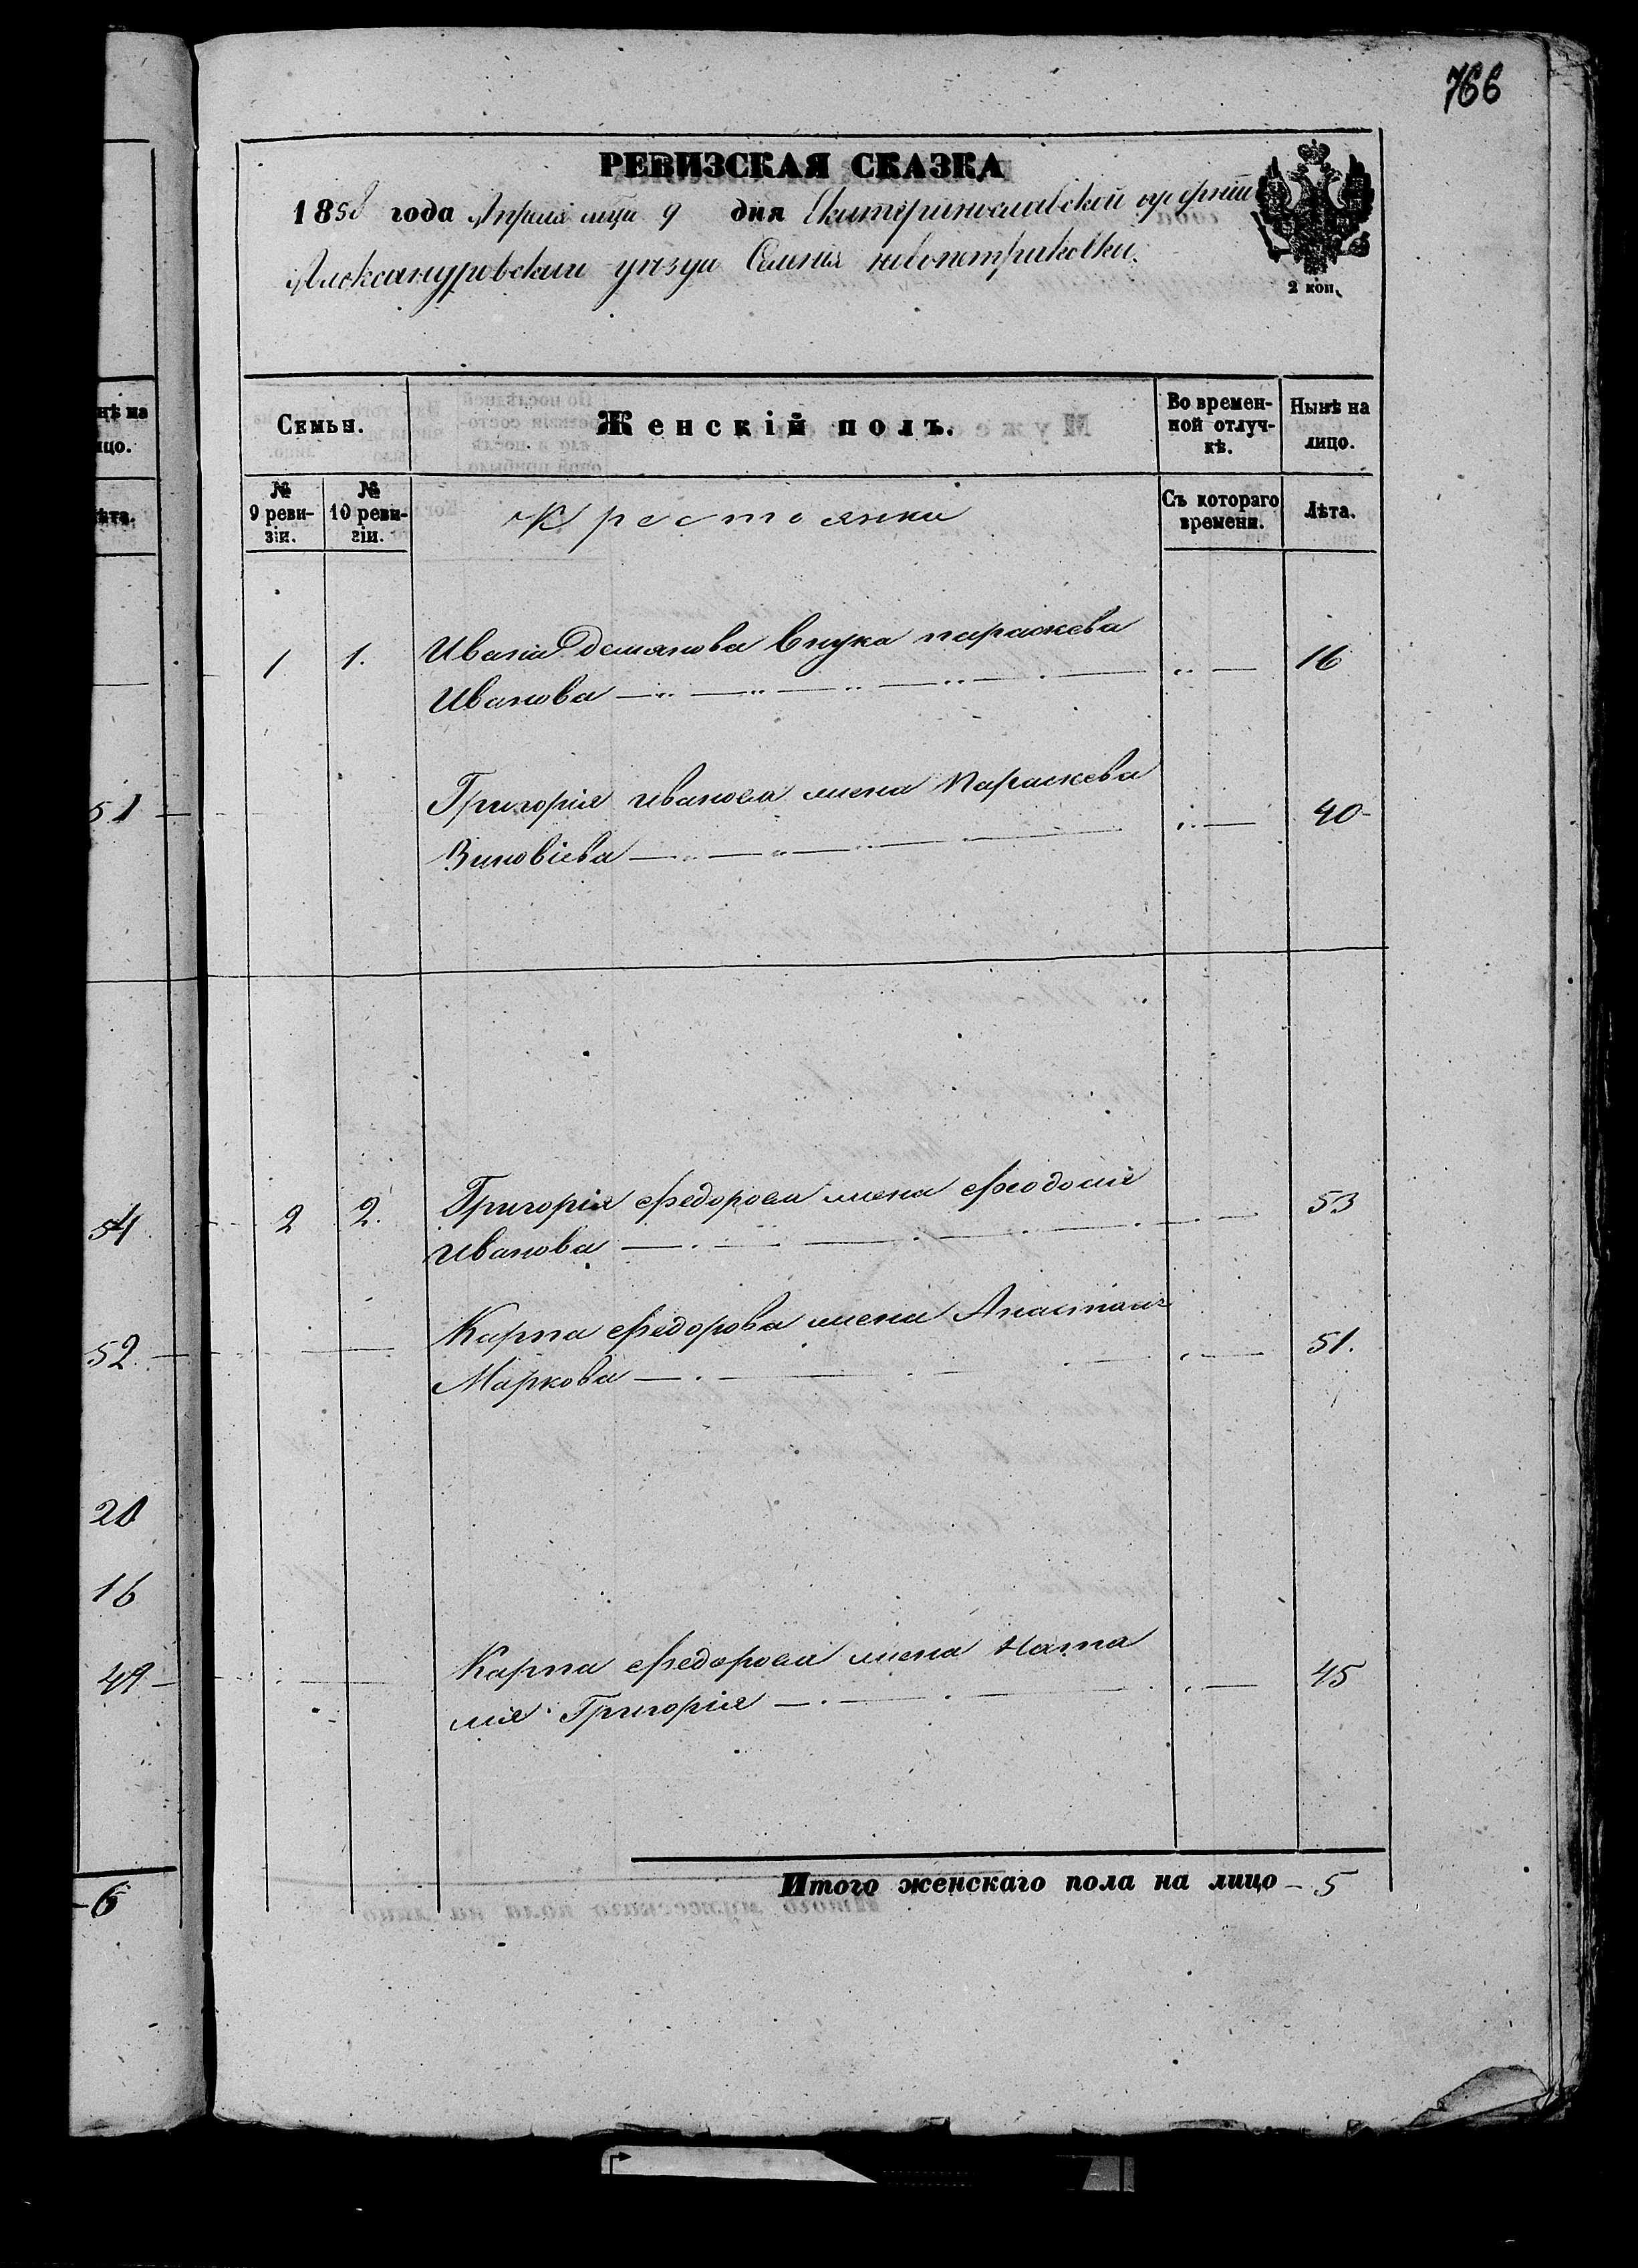 766
РЕВИЗСКАЯ СКАЗКА
1858 года Апреля мца 9 дня Екатеринославской губерніи
Александровскаго уѣзда Селенія новопетриковки.
2 коп.
нѣ на
ицо.
ѣта.
Семьи.
Женскій полъ.
Во времен-
ной отлуч-
кѣ.
Нынѣ на
лицо.
№
9 реви-
зіи.
№
10 реви-
зіи.
Крестьянки
Съ котораго
времени.
Лѣта.
1 1. Ивана Демянова внука параскева
Иванова 16
51
Григорія иванова жена Параскева
Зиновіева 40
54
2 2. Григорія Федорова жена Феодосія
Иванова 53
52
Карпа Федорова жена Анастасія
Маркова 51.
20
16
49
Карпа Федорова жена Ната
лія Григорія 45
6
Итого женскаго пола на лицо - 5